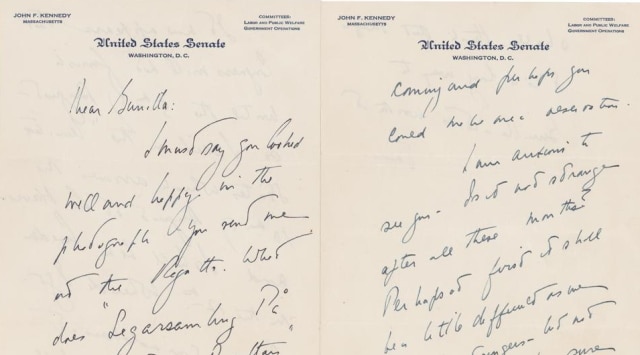 JOHN F. KENNEDY
MASSACHUSETTS
COMMITTEES:
LABOR AND PUBLIC WELFARE
GOVERNMENT OPERATIONS
United States Senate
WASHINGTON, D.C.
Dear Gunilla:
I must say you looked
well and happy in the
photograph you send me
at the Regatta. What
does "Segarsamling På
JOHN F. KENNEDY
MASSACHUSETTS
COMMITTEES:
LABOR AND PUBLIC WELFARE
GOVERNMENT OPERATIONS
United States Senate
WASHINGTON, D.C.
coming and perhaps you
could make me a reservation.
I am anxious to
see you - Is it not strange
after all these months?
Perhaps at first it shall
be a little difficult as we
strangers - but not
sure